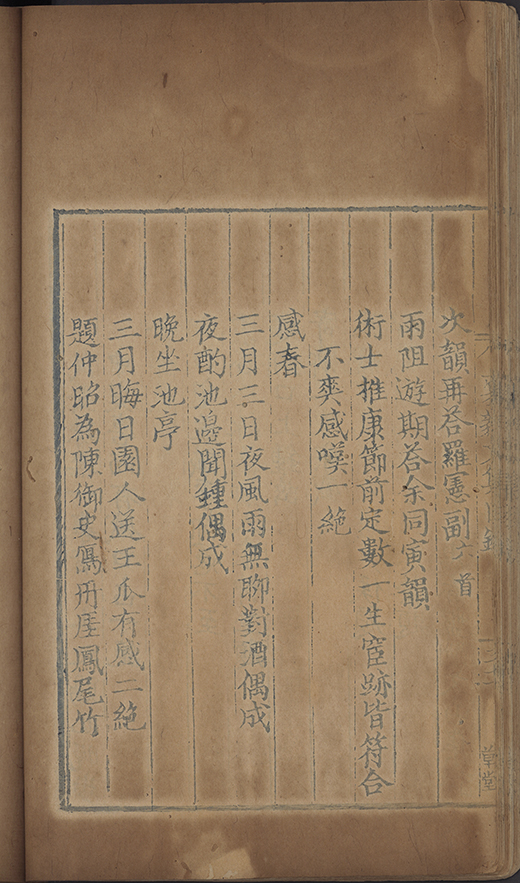 次韻再答羅憲副六首
雨阻遊期答余同寅韻
術士推康節前定數一生宦跡皆符合
不爽感嘆一絶
感春
三月三日夜風雨無聊對酒偶成
夜酌池邉聞鍾偶成
晩坐池亭
三月晦日園人送王瓜有感二絶
題仲昭為陳御史寫丹崖鳳尾竹
草堂